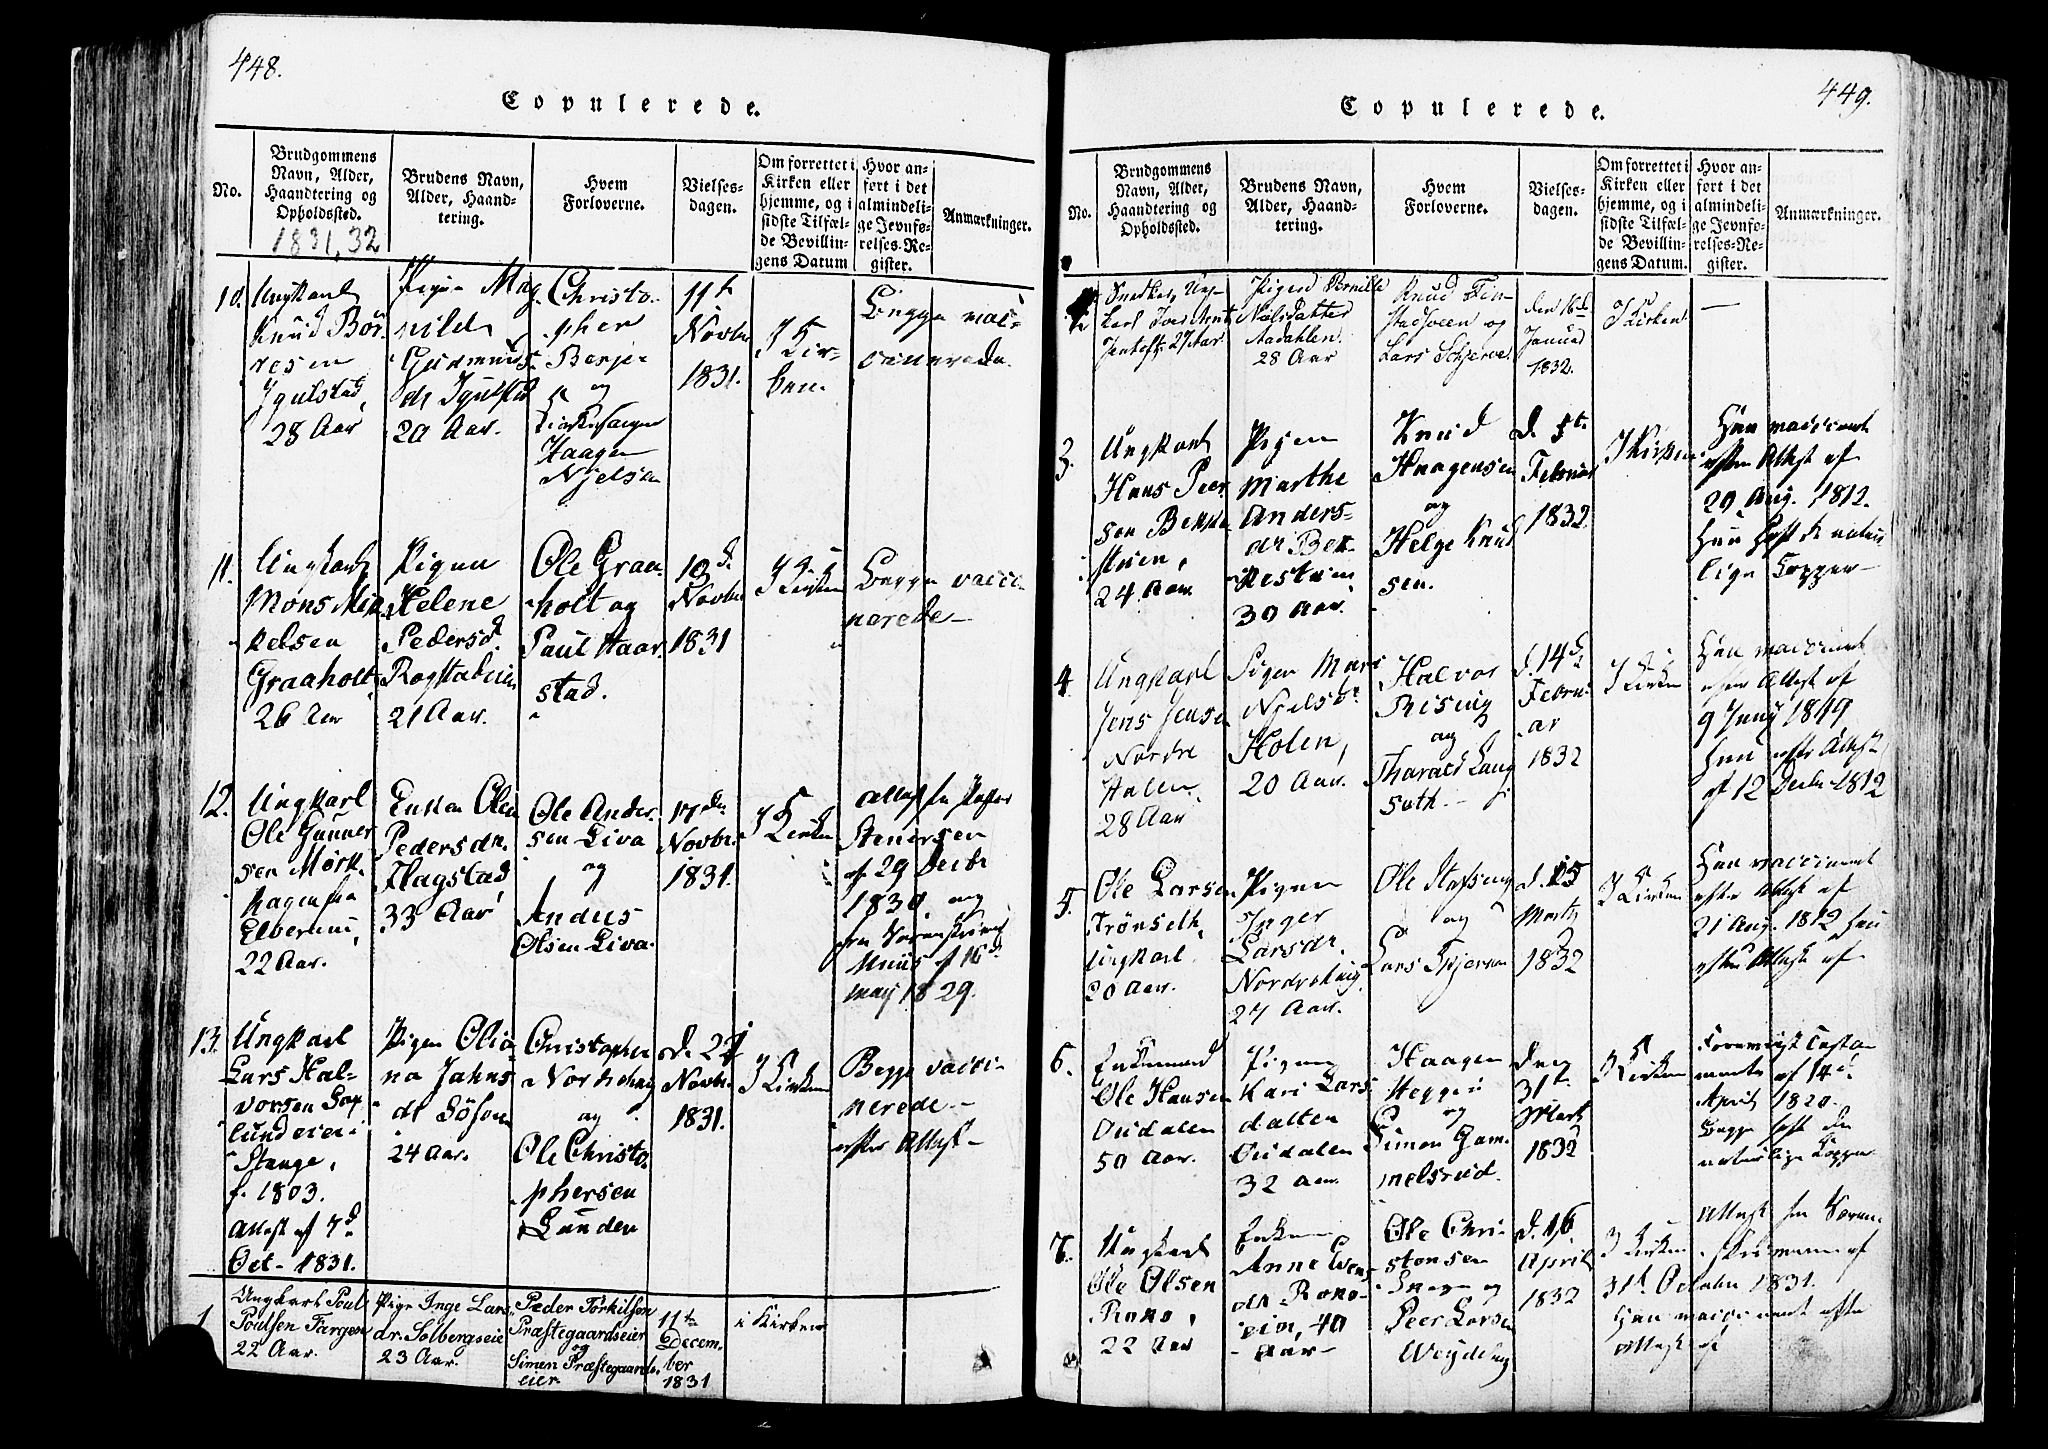 448.
Copulerede.
No.
Brudgommens
Navn, Alder,
Haandtering og
Opholdssted.
1831, 32
Brudens Navn,
Alder, Haand-
tering.
Hvem
Forloverne.
Vielses-
dagen.
Om forrettet i
Kirken eller
hjemme, og i
sidste Tilfæl-
de Bevillin-
gens Datum
Hvor an-
ført i det
almindeli-
ge Jevnfø-
relses-Re-
gister.
Anmærkninger.
10.
Ungkarl
Knud Bör-
resen
Igulstad,
28 Aar
Pigen Mag-
nild
Gudmunds
dr Igulstad
20 Aar.
Christo-
pher
Berje
og
Kirkesanger
Haagen
Njelsen
11te
Novbr
1831.
I Kir-
ken.
Begge vac-
cinerede.
11.
Ungkarl
Mons Mik-
kelsen
Graaholt
26 Aar
Pigen
Helene
Pedersd.
Rogstadeier
21 Aar.
Ole Graa-
holt og
Paul Haar-
stad.
10d.
Novbr
1831
I Kirken
Begge vacci-
nerede
12.
Ungkarl
Ole Gunner
sen Mörk-
hagen fra
Elverum,
22 Aar.
Enken Olea
Pedersdr.
Flagstad
33 Aar
Ole Ander-
sen Liva
og
Anders
Olsen Liva.
17de
Novbr.
1831.
I Kirken
Attest fra Pastor
Stenersen
af 29 Decbr
1830 og
fra Sorenskriver
af 16d
May 1829.
13.
Ungkarl
Lars Hal-
vorsen
lundeier i
Stange,
f. 1803.
Attest af 7d
Oct- 1831.
Pigen Olia-
na Johns
dr
24 Aar.
Christopher
Nordshaug
og
Ole Christo-
phersen
Lunden
d. 22
Novbr.
1831.
I Kirken
Begge vacci-
nerede
efter Attest
1
Ungkarl Poul
Poulsen Fargen
22 Aar.
Pige Inge Lars-
dr. Solbergseie
23 Aar.
Peder Törkilsen
Præstegaardseier
og
Simen Præstegaards-
eier
11te
Decem-
ber
1831
i Kirken
449.
Copulerede.
No.
Brudgommens
Navn, Alder,
Haandtering og
Opholdssted.
Brudens Navn,
Alder, Haand-
tering.
Hvem
Forloverne.
Vielses-
dagen.
Om forrettet i
Kirken eller
hjemme, og i
sidste Tilfæl-
de Bevillin-
gens Datum.
Hvor an-
ført i det
almindeli-
ge Jevnfø-
relses-Re-
gister.
Anmærkninger.
2
Snedker, Ung-
karl
27 Aar.
Pigen Pernille
Nielsdatter
Aadahlen
28 Aar
Knud Fin-
stadsveen og
Lars Schjerve
den 16d
Januar
1832.
I Kirken
—
3.
Ungkarl
Hans Peer-
sen Bekke-
stuen,
24 Aar
Pigen
Marthe
Anders-
dr Bek-
kestuen
30 Aar.
Knud
Haagensen
og
Helge Knud
sen.
d. 5te
Februar
1832.
I Kirken
Han vaccineret
efter Attest af
29 Aug. 1812.
Hun havt de natur
lige Kopper
4.
Ungkarl
Jens Jensen
Nordre
Holen
28 Aar
Pigen Mari
Njelsdr
Holen,
20 Aar.
Halvor
Rising
og
Tharald Laug
d. 14d
Febru-
ar
1832
I Kirken
Han vaccineret
efter Attest af
9 Juny 1819
Hun efter Attest
af 12 Decbr 1812
5.
Ole Larsen
Trönseth
Ungkarl
20 Aar.
Pigen
Inger
Larsdr.
Nordshaug
27 Aar.
Ole
og
Lars Skjerven
d. 15
Marts
1832
I Kirken
Han vaccineret
efter Attest af
21 Aug. 1812 Hun
efter Attest af
6.
Enkemand
Ole Hansen
Oudalen
50 Aar.
Pigen
Kari Lars
datter
Oudalen
32 Aar
Haagen
Heggen
og
Simon Gam-
melsrud.
den
31te
Mart
1832
I Kirken
af 14d.
April 1820.
Begge havt de
naturlige Kopper
7.
Ungkarl
Ole Olsen
Roko,
22 Aar
Enken
Anne Evens-
dr Roko-
eien, 40
Aar
Ole Chri-
stensen
og
Peer Larsen
d. 16
April
1832
I Kirken
Attest fra Soren-
skriveren af
31te October 1831.
Han vaccineret efter
Attest af